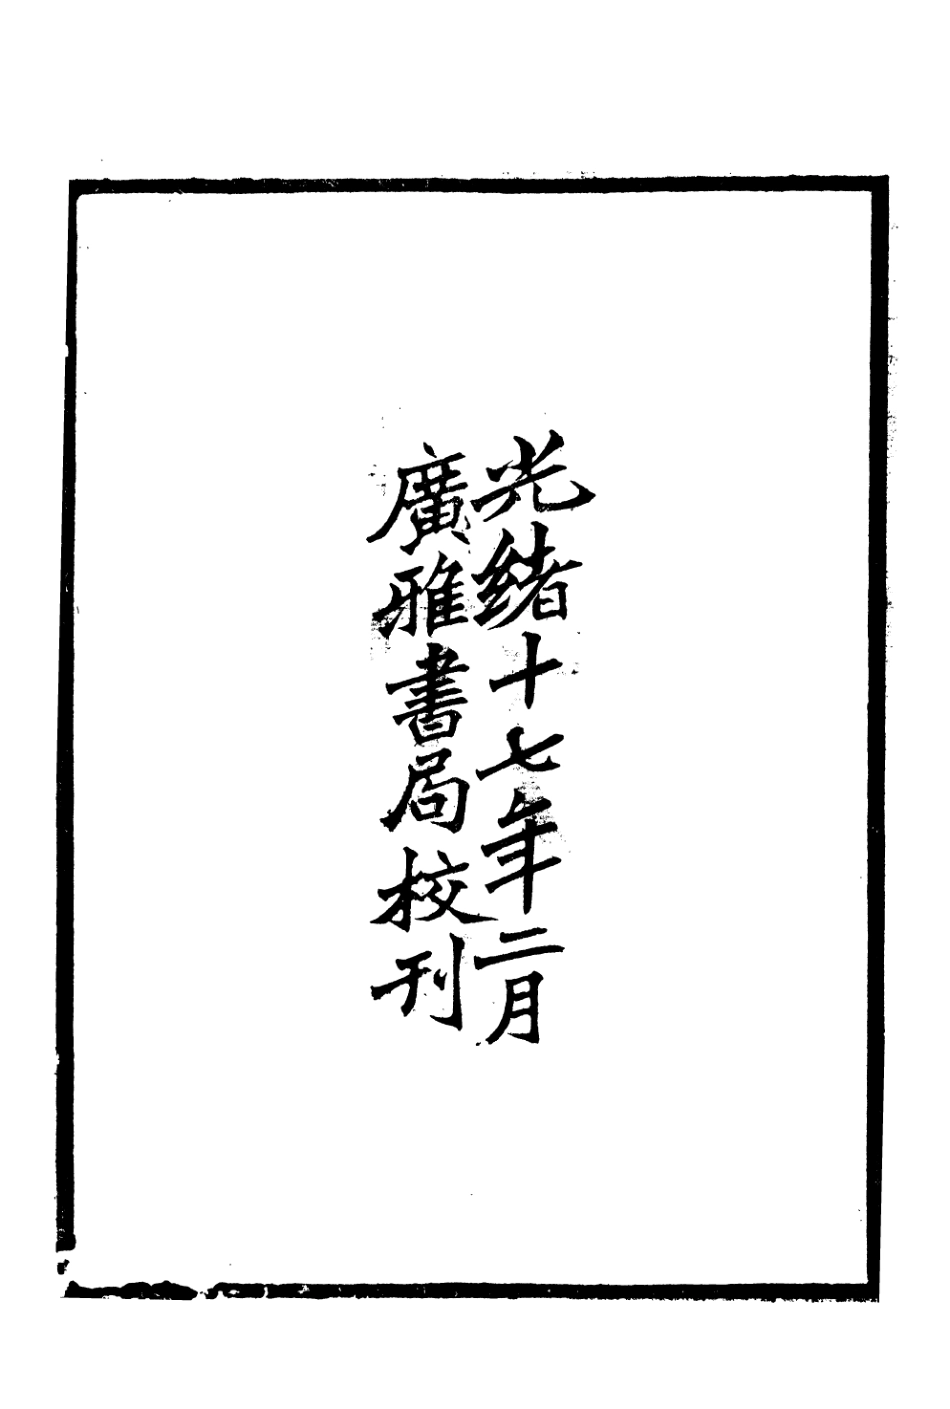 光緒十七年二月
廣雅書局校刊